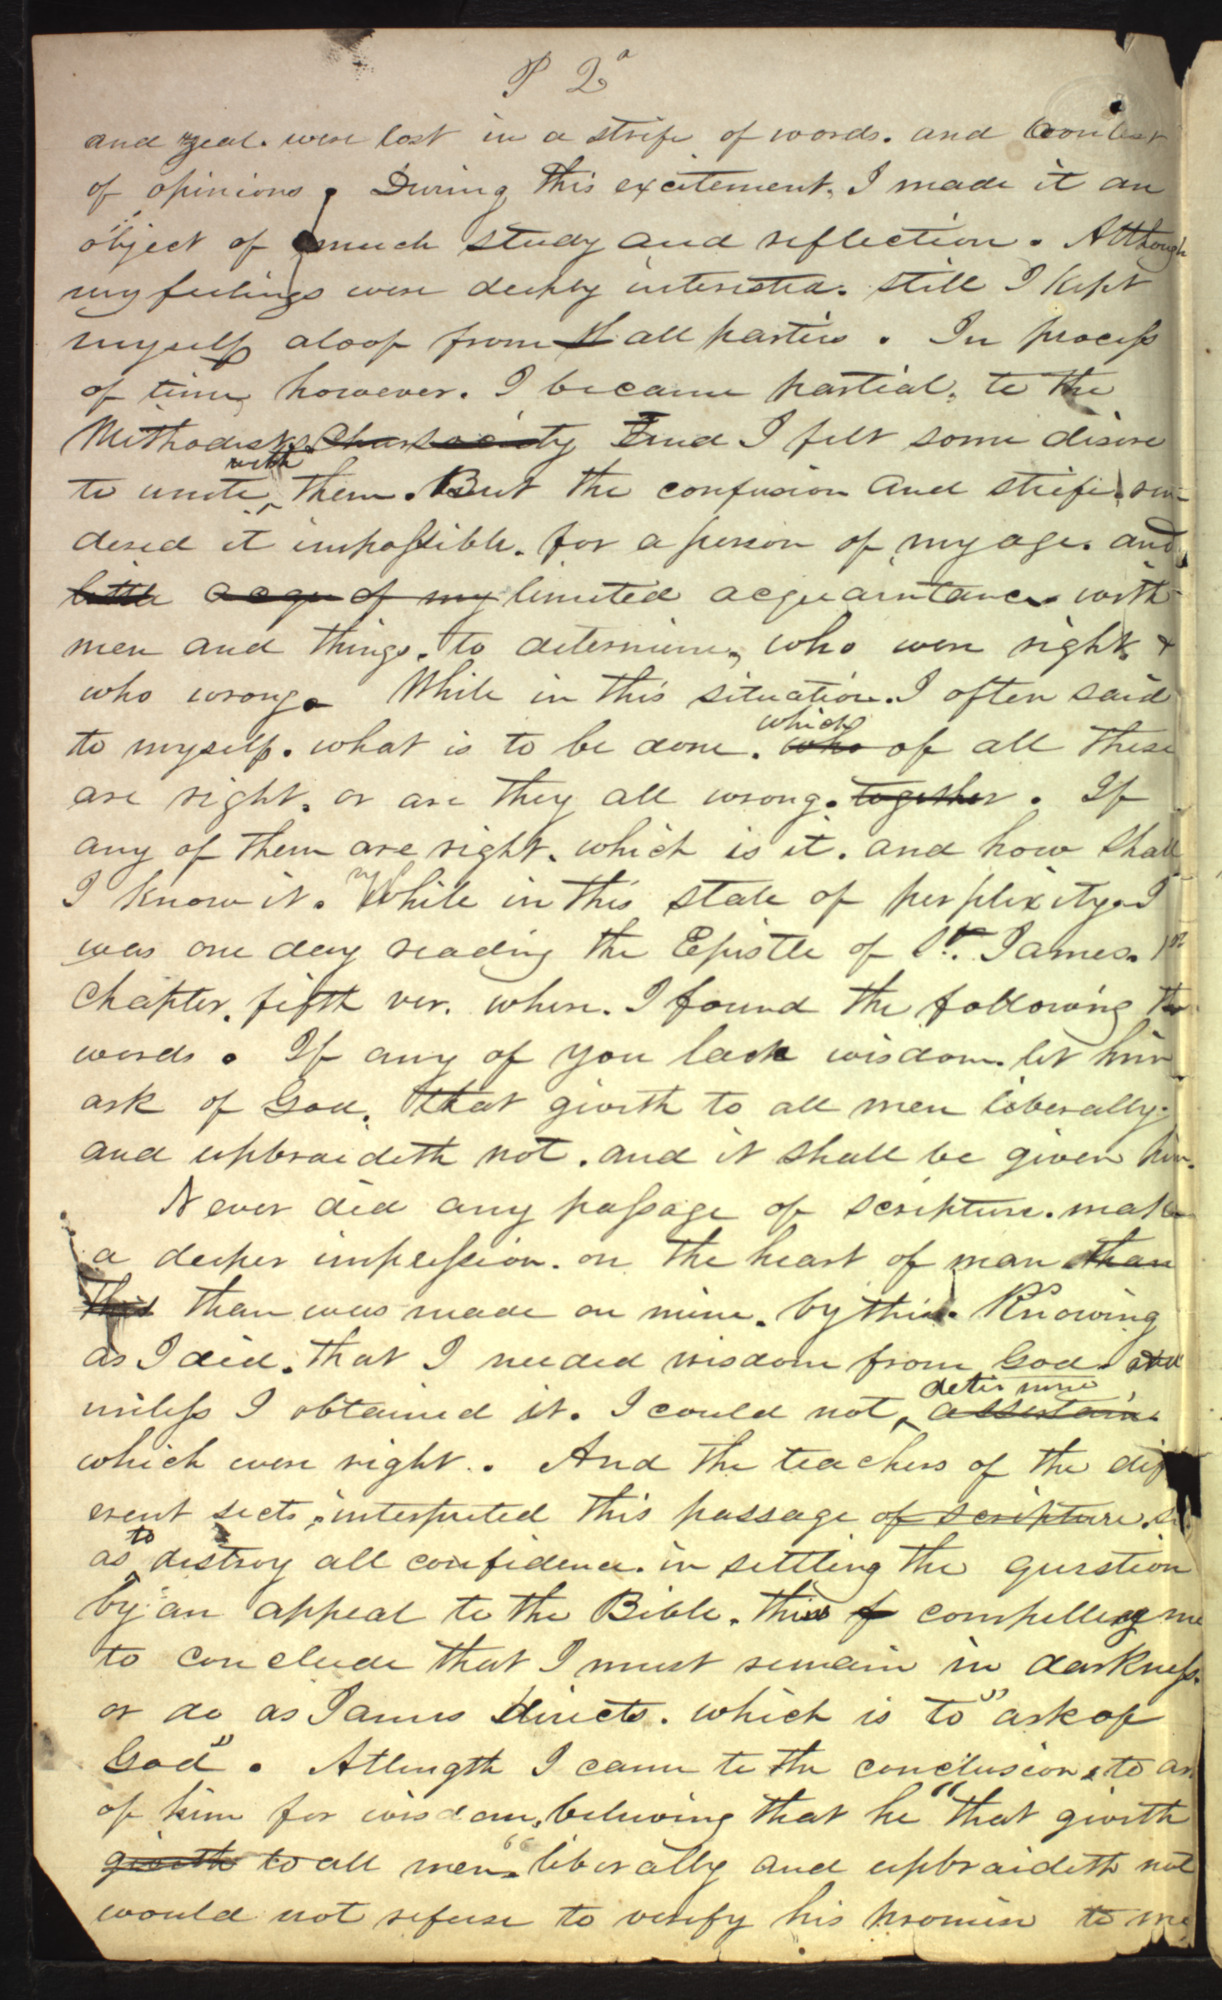 P 2
and zeal. were lost in a strife of words. and contest
of opinions. During this excitement. I made it an
object of much study and reflection. Although
my feelings were deeply interested. still I kept
myself aloof from all parties. In process
of time, however. I became partial, to the
Methodists. and I felt some disire
to unite with them. But the confusion and strife ren-
dered it impossible. for a person of my age. and
little acqu of my limited acquaintance with
men and things. to determine, who were right. &
who wrong. While in this situation. I often said
to myself. what is to be done. who which of all these
are right. or are they all wrong. together. If
any of them are right. which is it. and how shall
I know it. While in this state of perplexity. I
was one day reading the Epistle of St. James. 1st
Chapter. fifth ver. where. I found the following
words. If any of you lack wisdom. let him
ask of God. that giveth to all men liberally.
and upbraideth not. and it shall be given him.
Never did any passage of scripture. make
a deeper impression. on the heart of man than
this than was made on mine. by this. Knowing
as I did. that I needed wisdom from God. and
unless I obtained it. I could not, determine
which were right. And the teachers of the dif
erent sects, interpreted this passage of scripture. so
as to destroy all confidence. in settling the question
by an appeal to the Bible. this compelling me
to conclude that I must remain in darkness.
or do as James directs. which is to "ask of
God". Atlength I came to the conclusion, to ask
of him for wisdom, believing that he "that giveth
giveth to all men" liberally and upbraideth not
would not refuse to verify his promise to me